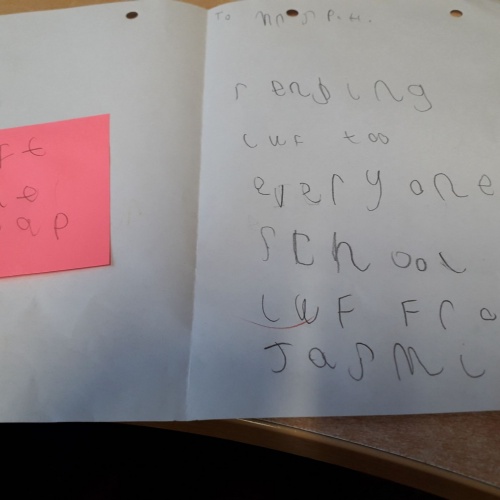 rt
e
ap
To
senDing
luf too
everyone
School
luf fro
Jasmi